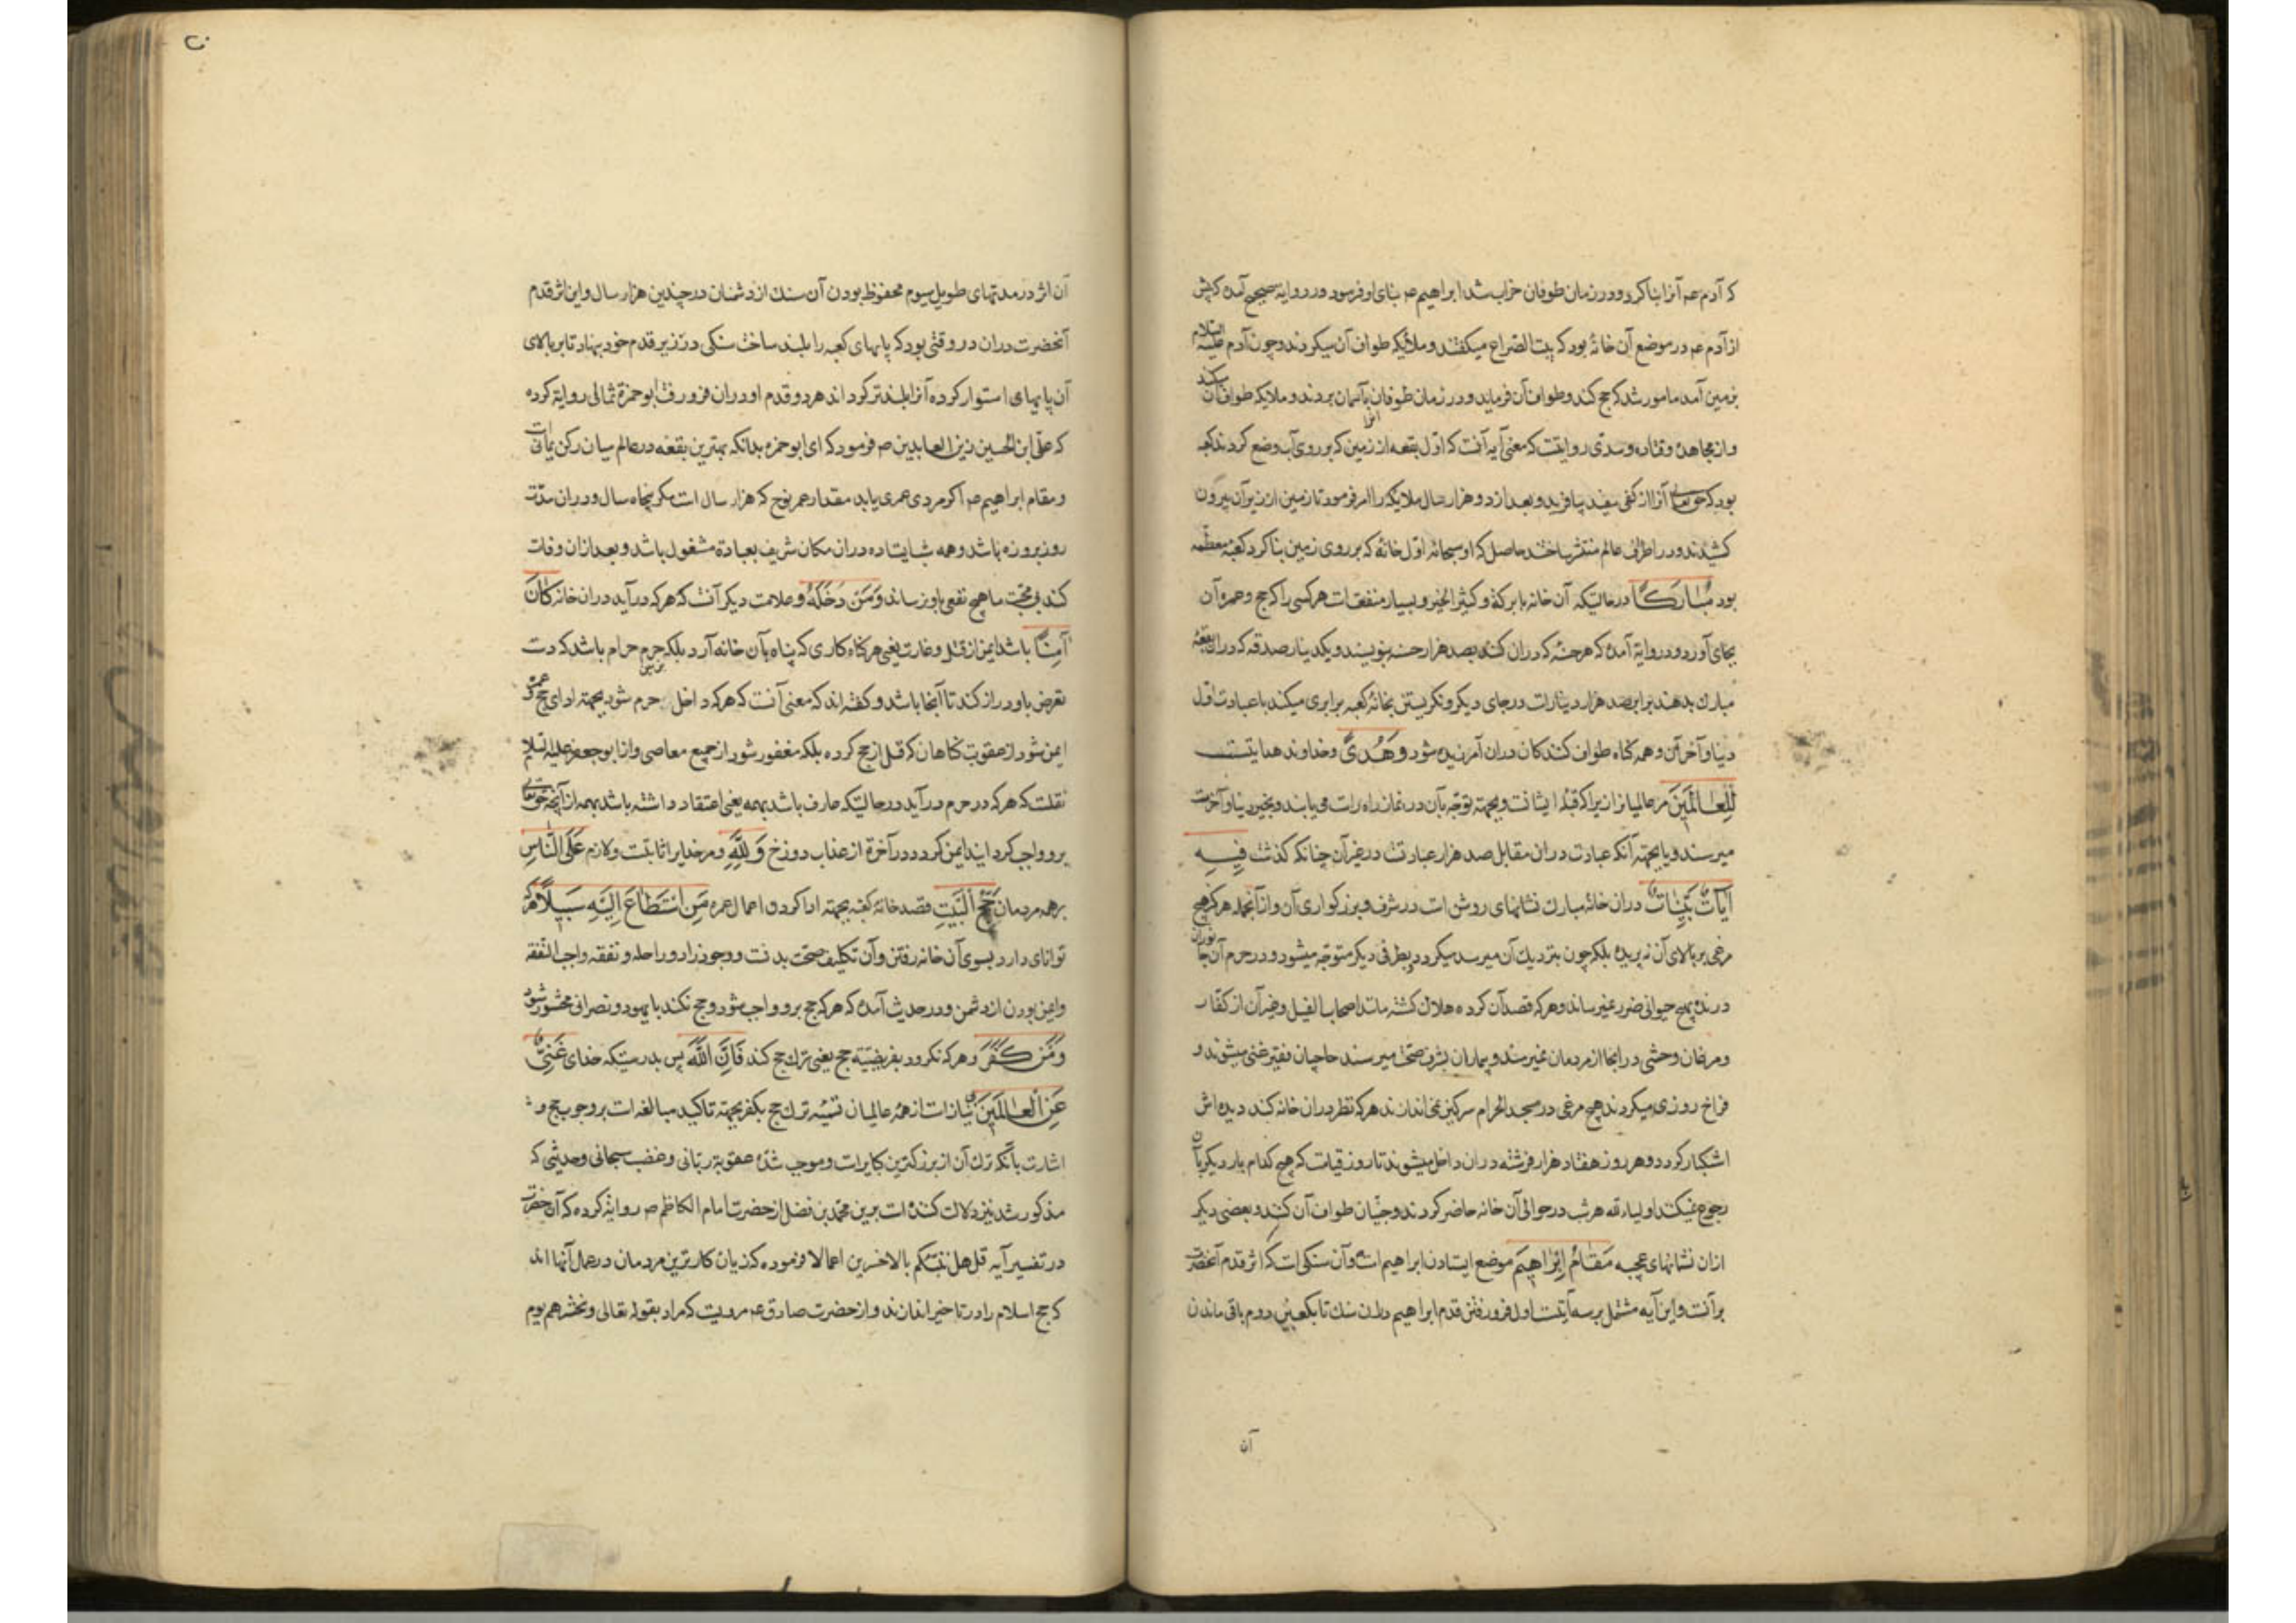 که آدم عم آنرا بنا کرد و در زمان طوفان خراب شد ابراهیم عم بنای او فرمود و در روایة صحیح آمده که پیش
از آدم عم در موضع آن خانهٔ بود که بیت الضراح میکفتند و ملائکه طواف آن میکردند و چون آدم علیه السلام
بزمین آمد مامور شد که حج کند و طواف آن فرماید و در زمان طوفان آنرا بآسمان بردند و ملایکه طواف آن میکنند
و از مجاهد و قتاده و سدی روایتست که معنی آیه آنست که اول بقعه از زمین که بر روی آب وضع کردند کعبه
بود که حق تعالی آنرا از کفی سفید بیافرید و بعد از دو هزار سال ملایکه را امر فرمود تا زمین از زیر آن بیرون
کشیدند و در اطراف عالم منتشر ساختند حاصل که او سبحانه اول خانهٔ که بر روی زمین بنا کرد کعبهٔ معظمه
بود مُبَارَكًا در حالتیکه آن خانه با برکة و کثیر الخیر و بسیار منفعتست هر کسی را که حج و عمره آن
بجای آورد و در روایة آمده که هر حسنهٔ که دران کنند بصد هزار حسنه بنویسند و یکدینار صدقه که دران بقعهٔ
مبارک بدهند برابر صد هزار دینارست در جای دیکر و نکریستن بخانهٔ کعبه برابری میکند با عبادت اول
دنیا و آخر آن و همه کناه طواف کنندکان دران آمرزیده شود وَهُدًى و خداوند هدایتست
لِلْعَالَمِينَ مر عالمیانرا زیرا که قبلهٔ ایشانست و بجهة توجه بآن در نماز راه راست می یابند و بخیر دنیا و آخرت
میرسند و یا بجهة آنکه عبادت دران مقابل صد هزار عبادتست در غیر آن چنانکه کذشت فِيهِ
آيَاتٌ بَيِّنَاتٌ دران خانهٔ مبارک نشانهای روشن است در شرف و بزرکواری آن و از آنجمله هرکز هیچ
مرغی بر بالای آن نه پریده بلکه چون بنزدیک آن میرسد میکردد و بطرفی دیکر متوجه میشود و در حرم آن جانوران
درنده بهیچ حیوانی ضرر نمیرساند و هر که قصد آن کرده هلاک کشته مانند اصحاب الفیل و غیر آن از کفار
و مرغان وحشی در آنجا از مردمان نمیرسند و بیماران بشرف صحت میرسند حاجیان فقیر غنی میشوند و
فراخ روزی میکردند هیچ مرغی در مسجد الحرام سرکین نمی اندازند هر که نظر دران خانه کند دیده اش
اشکبار کردد و هر روز هفتاد هزار فرشته دران داخل میشوند تا روز قیامت که هیچ کدام بار دیکر بآن
رجوع نمیکنند اولیاء لله هر شب در حوالی آن خانه حاضر کردند و جنیان طواف آن کنند و بعضی دیکر
ازان نشانهای عجیبه مَقَامُ إِبْرَاهِيمَ موضع ایستادن ابراهیم است و آن سنکی است که اثر قدم آنحضرت
برآنست و این آیه مشتمل بر سه آیتست اول فرو رفتن قدم ابراهیم دران سنک تا بکعبین دوم باقی ماندن
آن
آن اثر در مدتهای طویل سیوم محفوظ بودن آن سنک از دشمنان در چندین هزار سال و این اثر قدم
آنحضرت دران در وقتی بود که پایهای کعبه را بلند ساخت سنکی در زیر قدم خود بنهاد تا بر بالای
آن پایهای استوار کرده آنرا بلندتر کرداند هر دو قدم او دران فرو رفت ابو حمزه ثمالی روایة کرده
که علی ابن الحسین زین العابدین ص فرمود که ای ابو حمزه بدانکه بهترین بقعه در عالم میان رکن یمانی است
و مقام ابراهیم عم اکر مردی عمری یابد مقدار عمر نوح که هزار سال است مکر پنجاه سال و دران مدت
روز بروزه باشد و همه شب ایستاده دران مکان شریف بعبادة مشغول باشد و بعد ازان وفات
کند بی محبت ما هیچ نفعی باو نرساند وَمَنْ دَخَلَهُ و علامت دیکر آنست که هر که درآید دران خانه كَانَ
آمِنًا باشد ایمن از قتل و غارت یعنی هر کناه کاری که پناه بآن خانه آرد بلکه حرم حرام باشد که دست
تعرض باو دراز کنند تا آنجا باشد و کفته اند که معنی آنست که هر که داخل حرم شود بجهة ادای حج و عمره
ایمن شود از عقوبت کناهان که قبل از حج کرده بلکه مغفور شود از جمیع معاصی و از ابو جعفر علیه السلام
نقلست که هر که در حرم درآید در حالتیکه عارف باشد بهمه یعنی اعتقاد داشته باشد بهمه از آنچه حق تعالی
برو واجب کردانیده ایمن کردد در آخرة از عذاب دوزخ وَلِلَّهِ و مر خدایراست ثابت و لازم عَلَى النَّاسِ
بر همه مردمان حِجُّ الْبَيْتِ قصد خانهٔ کعبه بجهة ادا کردن اعمال عمره مَنِ اسْتَطَاعَ إِلَيْهِ سَبِيلًا هر که
توانای دارد بسوی آن خانه رفتن و آن تکلیف صحت بدنست و وجود زاد و راحله و نفقه واجب النفقه
و ایمن بودن از دشمن و در حدیث آمده که هر که حج برو واجب شود و حج نکند با یهود و نصرانی محشور شود
وَمَنْ كَفَرَ و هر که نکرود بفریضیه حج یعنی ترک حج کند فَإِنَّ اللَّهَ پس بدرستیکه خدای غَنِيٌّ
عَنِ الْعَالَمِينَ بی نیازست از همهٔ عالمیان تسمیه ترک حج بکفر بجهة تاکید مبالغه است بر وجوب حج و
اشارت بآنکه ترک آن از بزرکترین کبایرست و موجب شدة عقوبة ربانی و غضب سبحانی و حدیثی که
مذکور شد نیز دلالت کننده است برین محمد بن فضل از حضرت امام الکاظم ص روایة کرده که آن حضرت
در تفسیر آیه قل هل ننبئکم بالاخسرین اعمالا فرموده که زیان کارترین مردمان در عمل آنها اند
که حج اسلام را در تاخیر اندازند و از حضرت صادق عم مرویست که مراد بقوله تعالی و نحشرهم یوم